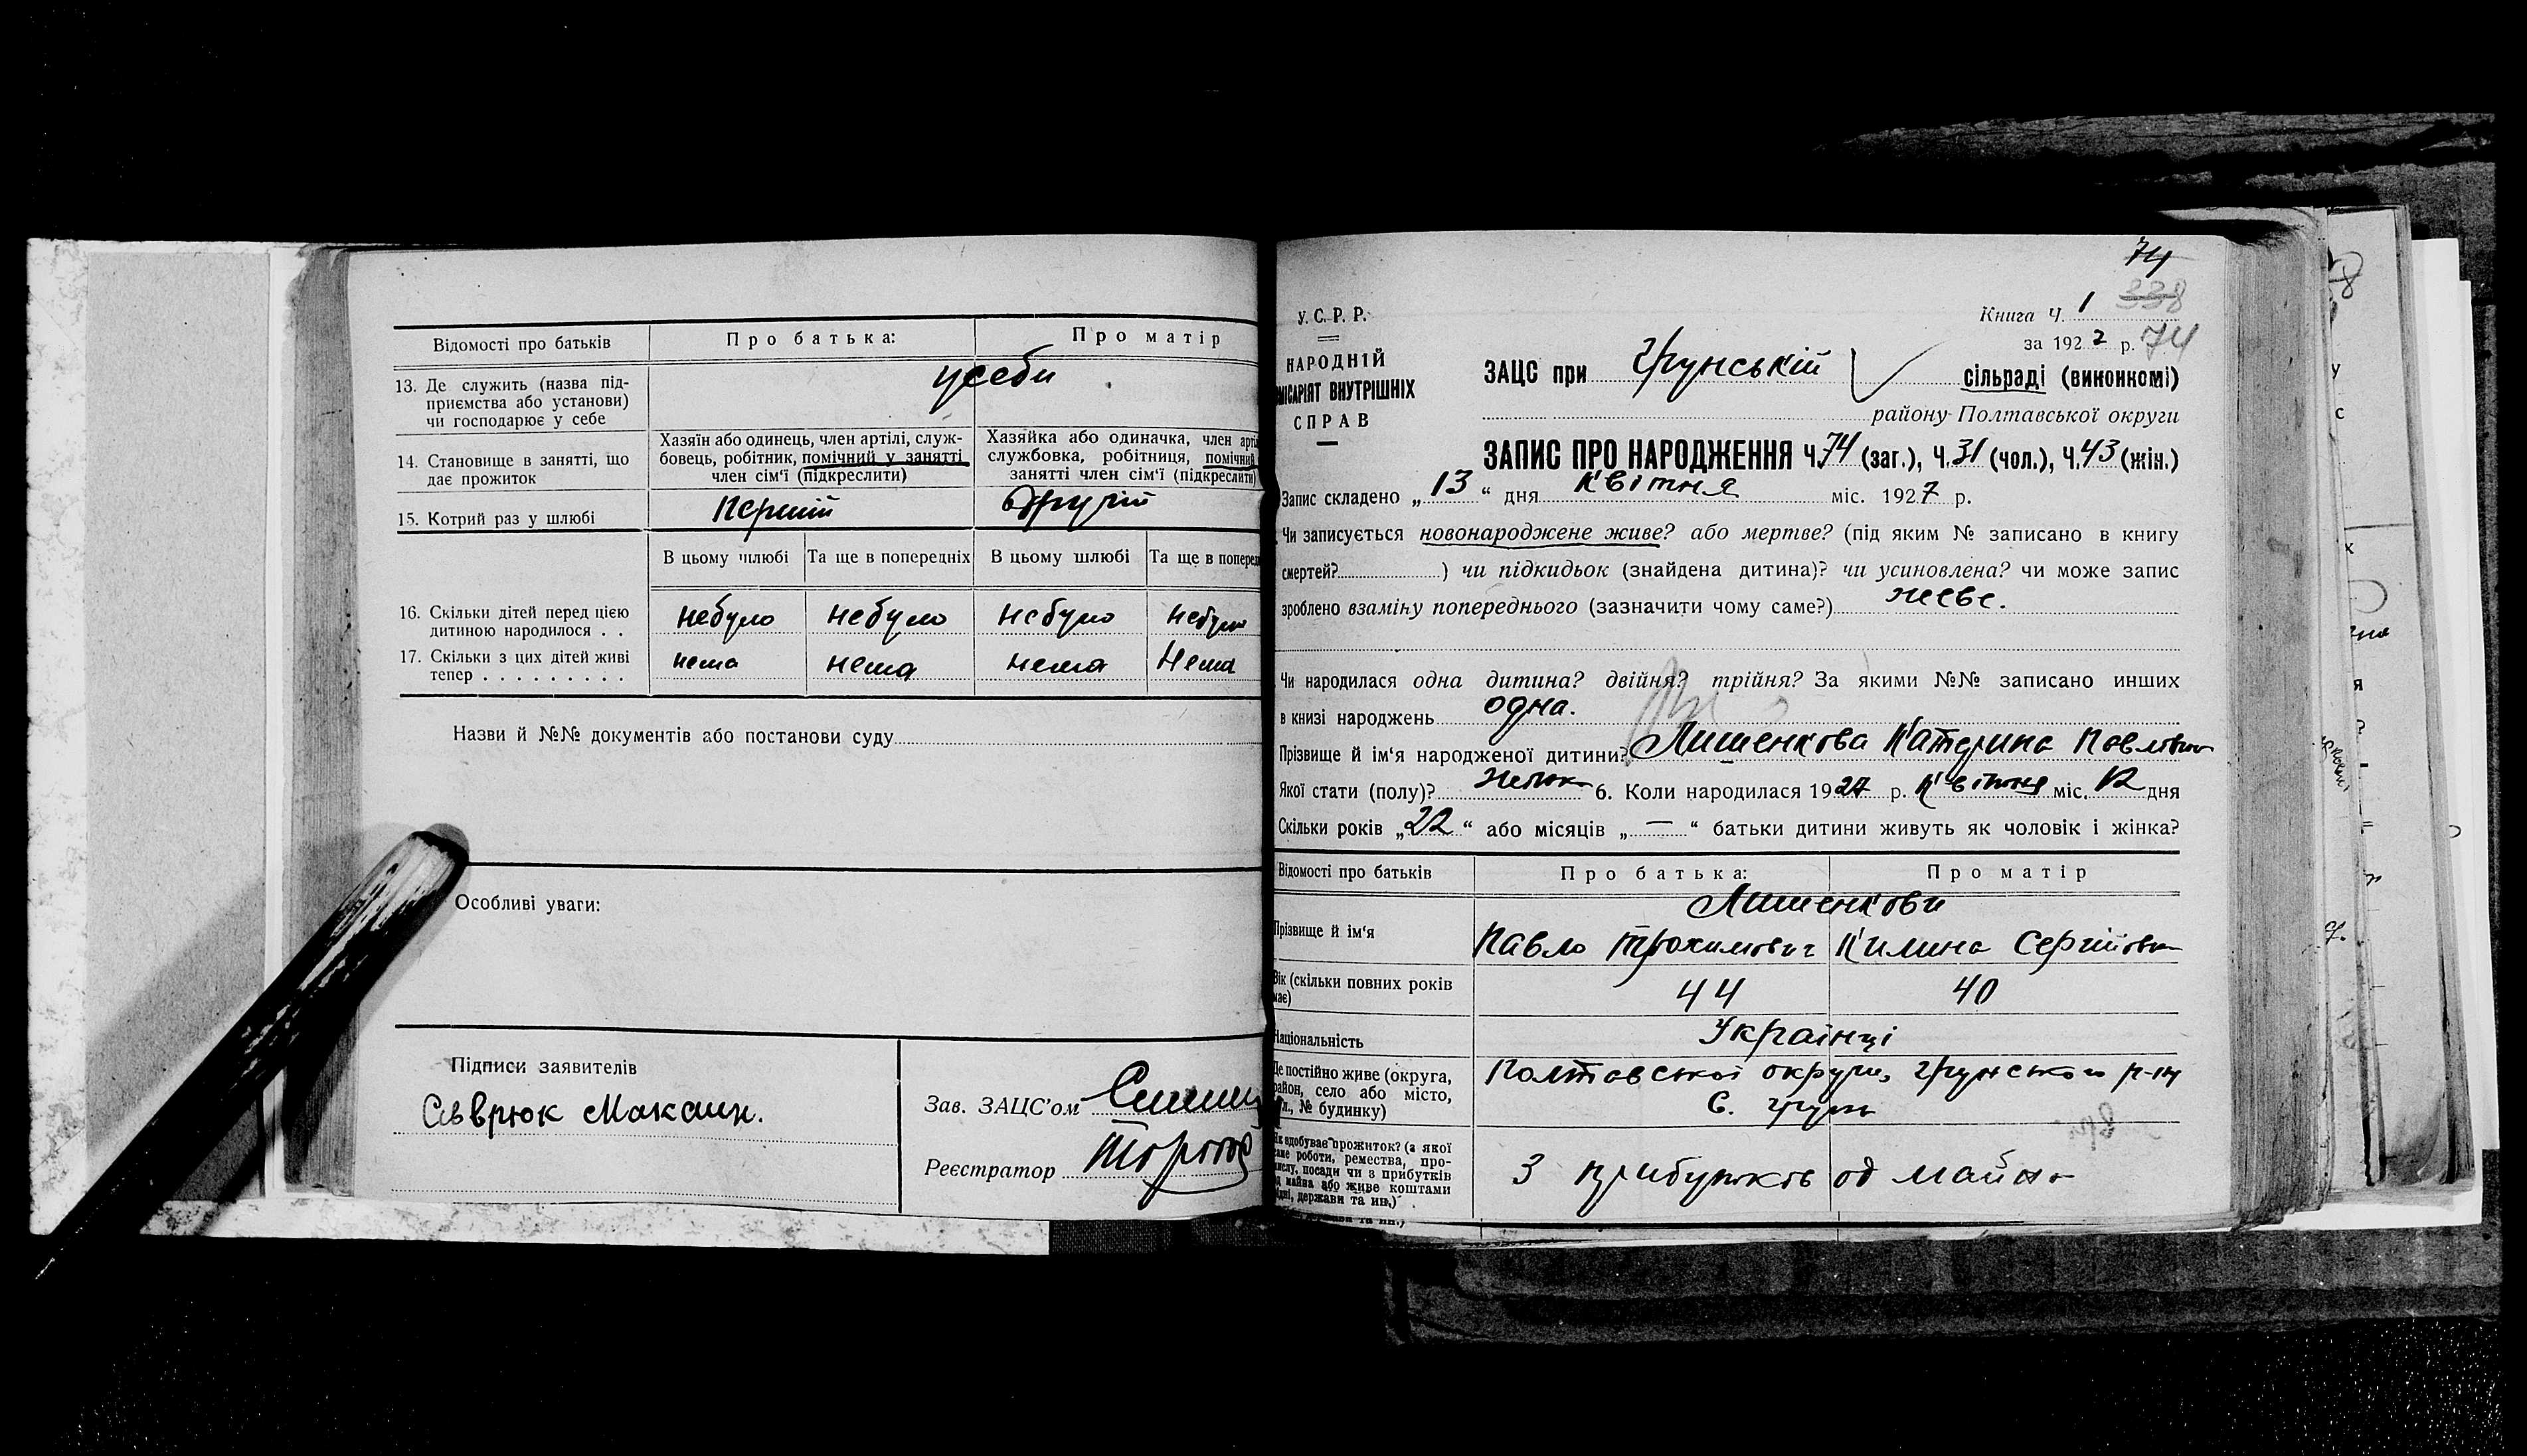 Відомості про батьків
Про батька:
Про матір
13. Де служить (назва під-
приємства або установи)
чи господарює у себе
усеби
14. Становище в занятті, що
дає прожиток
Хазяїн або одинець, член артілі, служ-
бовець, робітник, помічний у занятті
член сім'ї (підкреслити)
Хазяйка або одиначка, член арті
службовка, робітниця, помічний
занятті член сім'ї (підкреслити)
15. Котрий раз у шлюбі
перший
другий
В цьому шлюбі
Та ще в попередніх
В цьому шлюбі
Та ще в поперед
16. Скільки дітей перед цією
дитиною народилося . .
небуло небуло небуло небуло
17. Скільки з цих дітей живі
тепер . . . . . . . . .
нема нема нема Нема
Назви й №№ документів або постанови суду
Особливі уваги:
Підписи заявителів
Сьврюк Максим.
Зав. ЗАЦС'ом
Реєстратор
74
338
У. С. Р. Р.
НАРОДНІЙ
МІСАРІЯТ ВНУТРІШНІХ
СПРАВ
Книга Ч. 1
за 1927 р. 74
ЗАЦС при Грунській сільраді (виконкомі)
району Полтавської округи
ЗАПИС ПРО НАРОДЖЕННЯ Ч. 74 (заг.), Ч. 31 (чол.), Ч. 43 (жін.)
Запис складено „ 13 “ дня Квітня міс. 1927 р.
Чи записується новонароджене живе? або мертве? (під яким № записано в книгу
смертей? ) чи підкидьок (знайдена дитина)? чи усиновлена? чи може запис
зроблено взаміну попереднього (зазначити чому саме?) живе.
Чи народилася одна дитина? двійня? трійня? За якими №№ записано инших
в книзі народжень одна.
Прізвище й ім'я народженої дитини? Лишенкова Катерина Павловна
Якої стати (полу)? жінок 6. Коли народилася 1927 р. Квітня міс. 12 дня
Скільки років „ 22 “ або місяців „ — “ батьки дитини живуть як чоловік і жінка?
Відомості про батьків
Про батька:
Про матір
Лишенкови
Прізвище й ім'я
Павло Трохимович
Килина Сергіїовна
Вік (скільки повних років
має)
44
40
Національність
Українці
Де постійно живе (округа,
район, село або місто,
вул., № будинку)
Полтавської округи, Грунського р-ну
с. Грунь
Як здобуває прожиток? (з якої
саме роботи, ремества, про-
мислу, посади чи з прибутків
од майна або живе коштами
рідні, держави та ин.)
З прибутків од майна